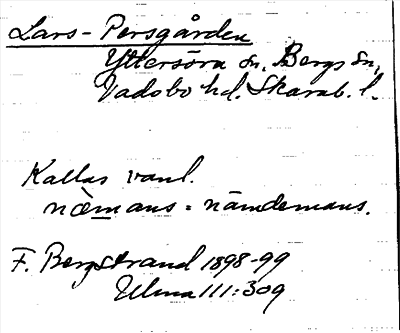 Lars-Persgården
Yttersöra sn, Bergs sn,
Vadsbo hd. Skarab. l.
Kallas vanl.
næmans = nämdemans.
F. Bergstrand 1898-99
Ulma 111:309